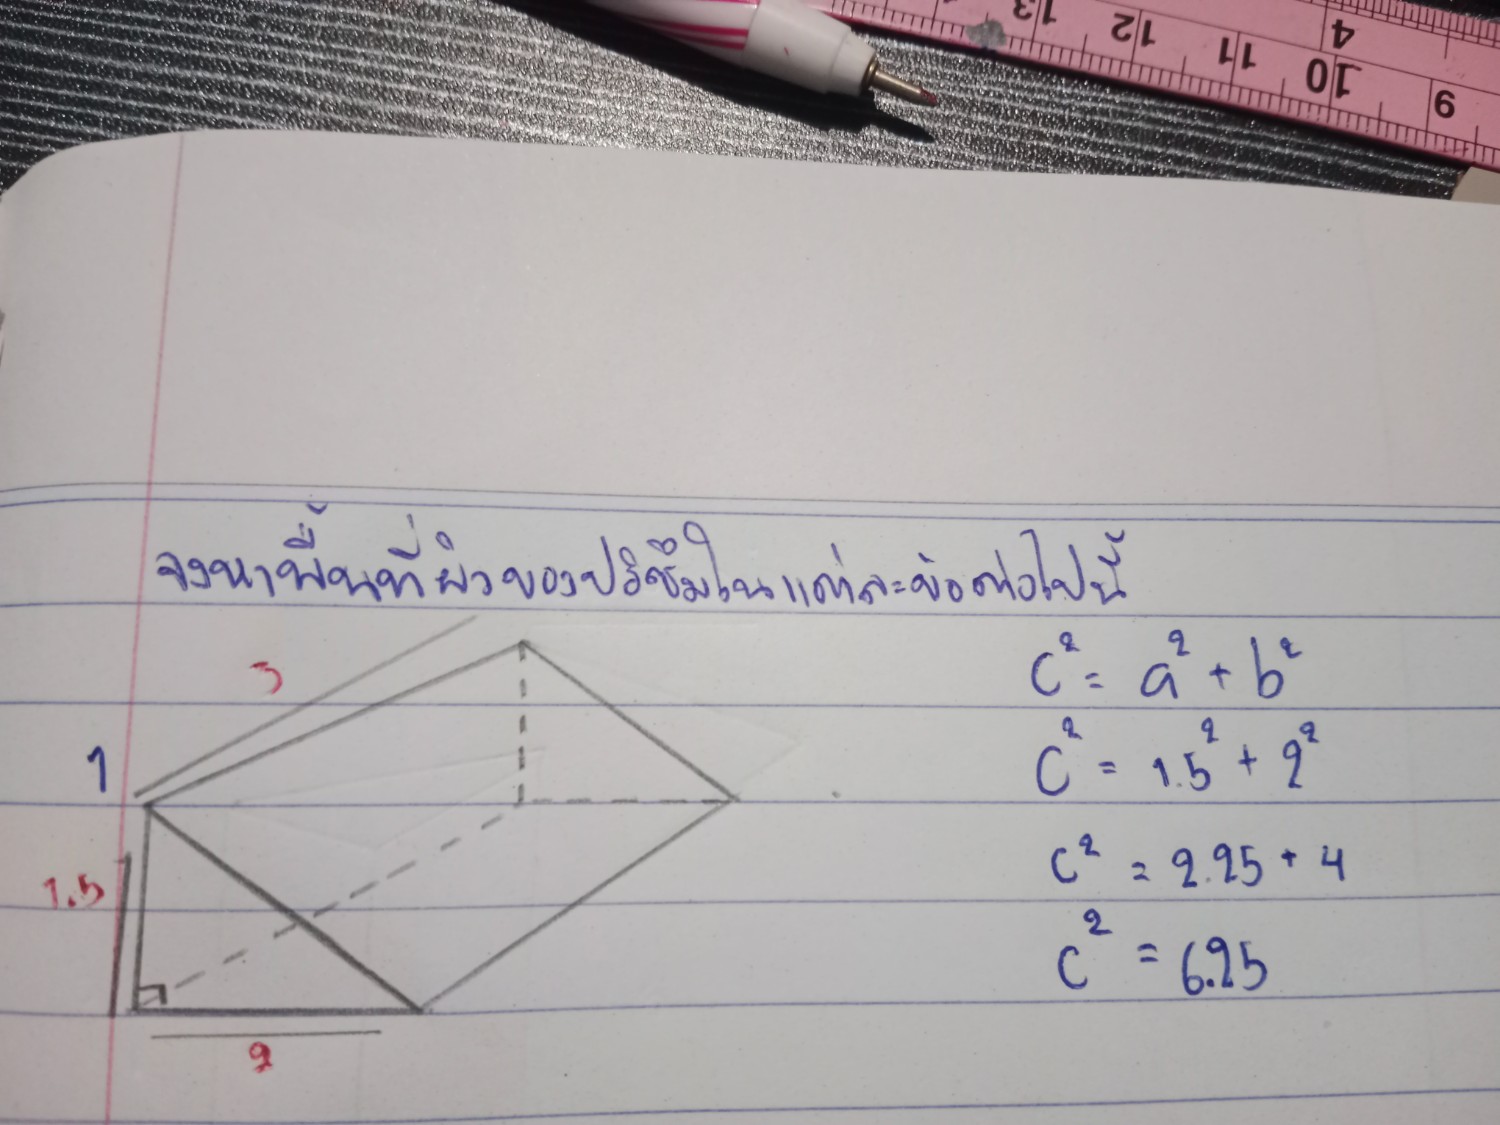 13 12 11 10 9
4
จงหาพื้นที่ผิวของปริซึมในแต่ละข้อต่อไปนี้
3
1
1.5
2
c² = a² + b²
c² = 1.5² + 2²
c² = 2.25 + 4
c² = 6.25